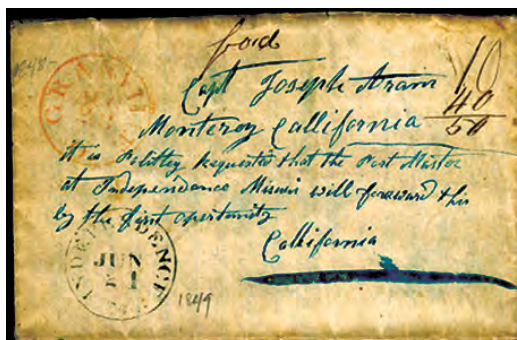 paid
1848
Capt Joseph Aram
10
40
50
Monteroy Callifornia
it is Politley Requested that the Post Master
at Independance Missuri will foreward this
by the first opertunity
Callifornia
INDEPENDENCE
JUN
1
1849